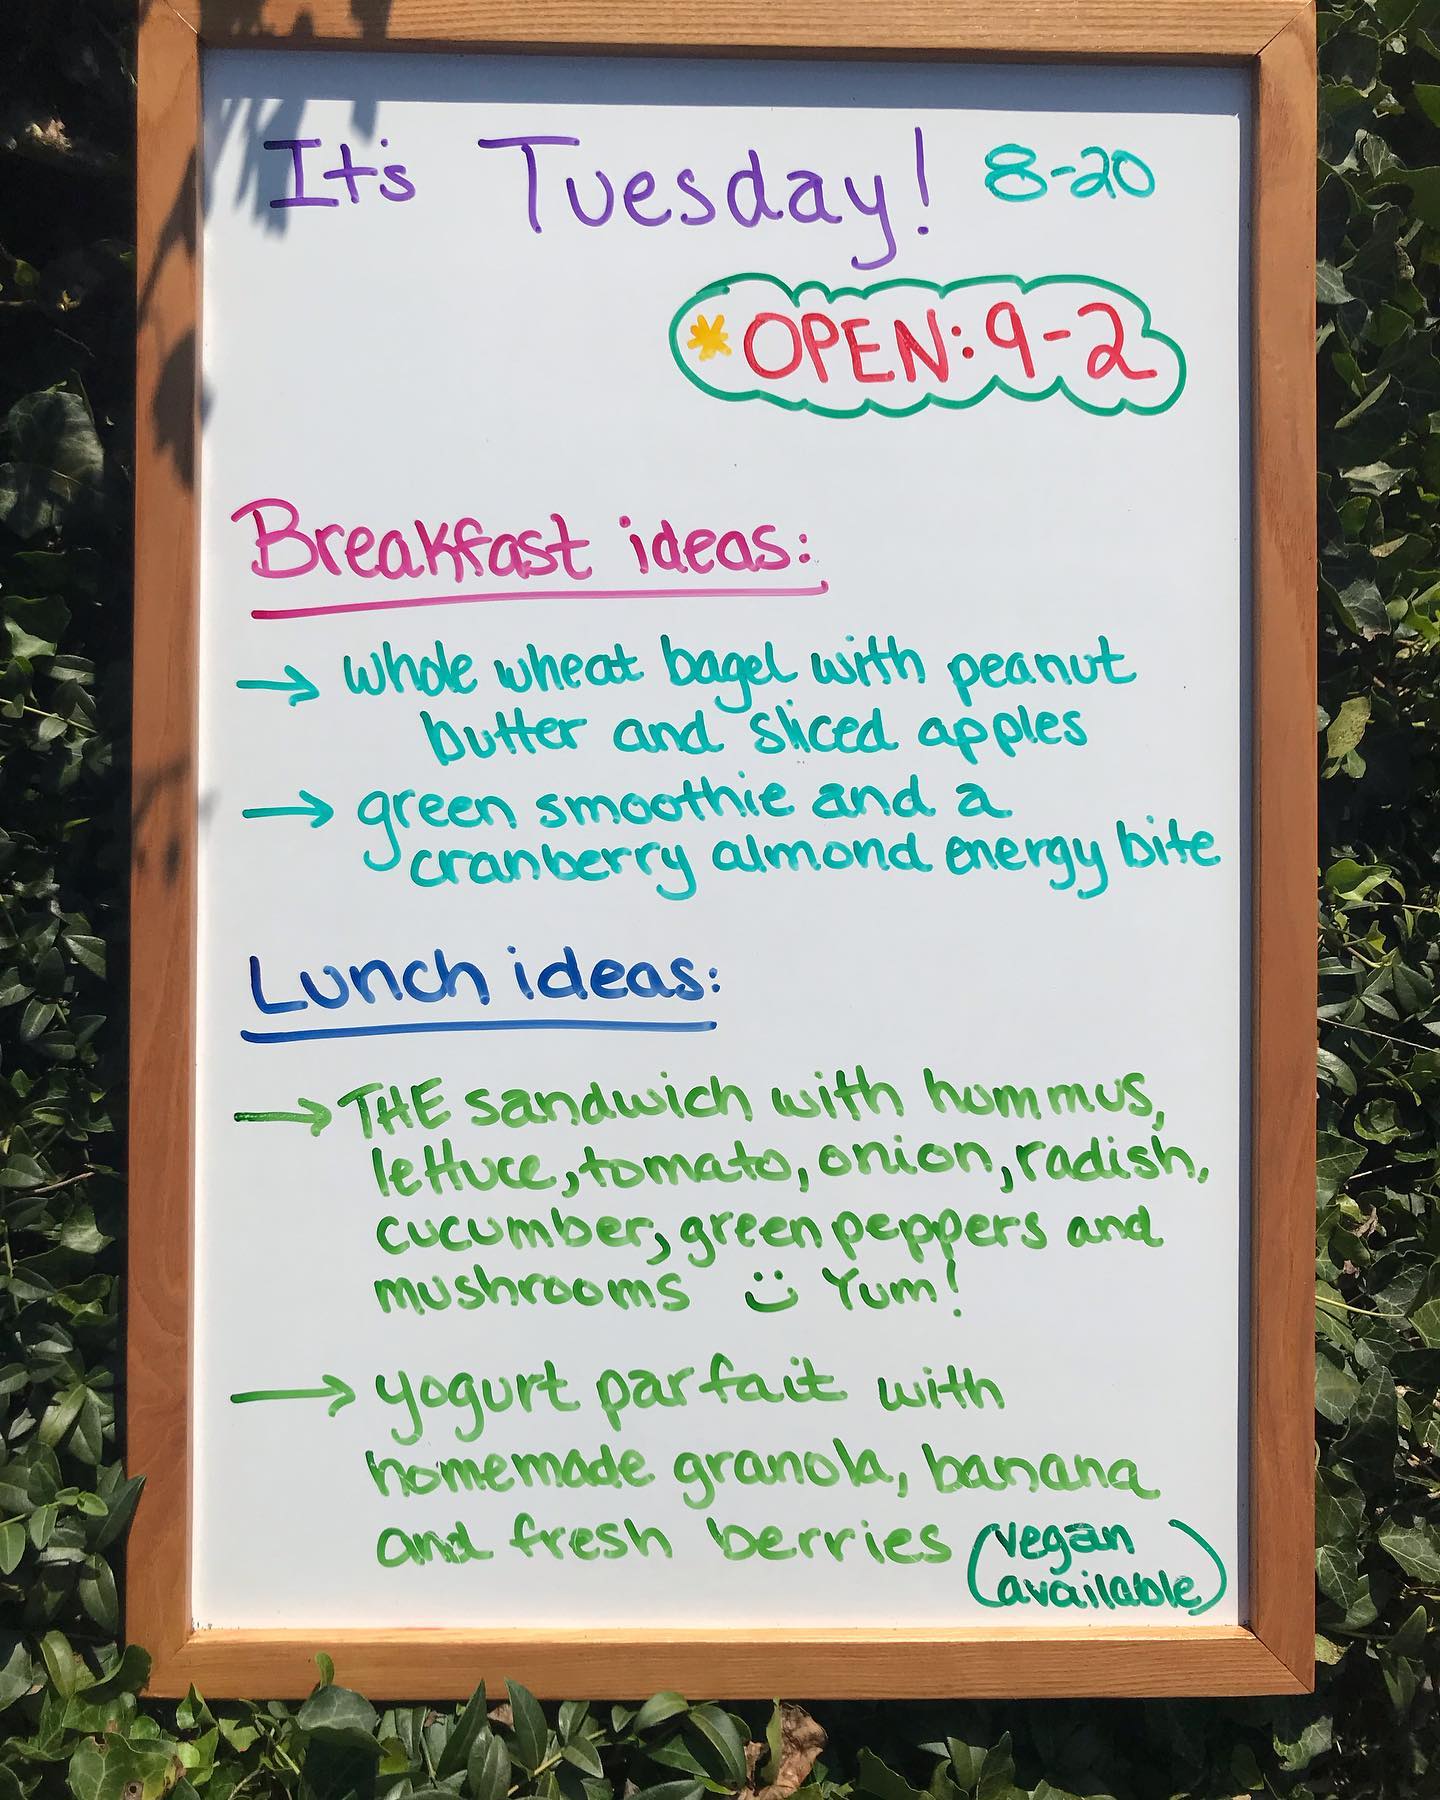 It's Tuesday! 8-20
*OPEN: 9-2
Breakfast ideas:
→ whole wheat bagel with peanut
butter and sliced apples
→ green smoothie and a
cranberry almond energy bite
Lunch ideas:
→ THE sandwich with hommus,
lettuce, tomato, onion, radish,
cucumber, green peppers and
mushrooms ü Yum!
→ yogurt parfait with
homemade granola, banana
and fresh berries (vegan
available)